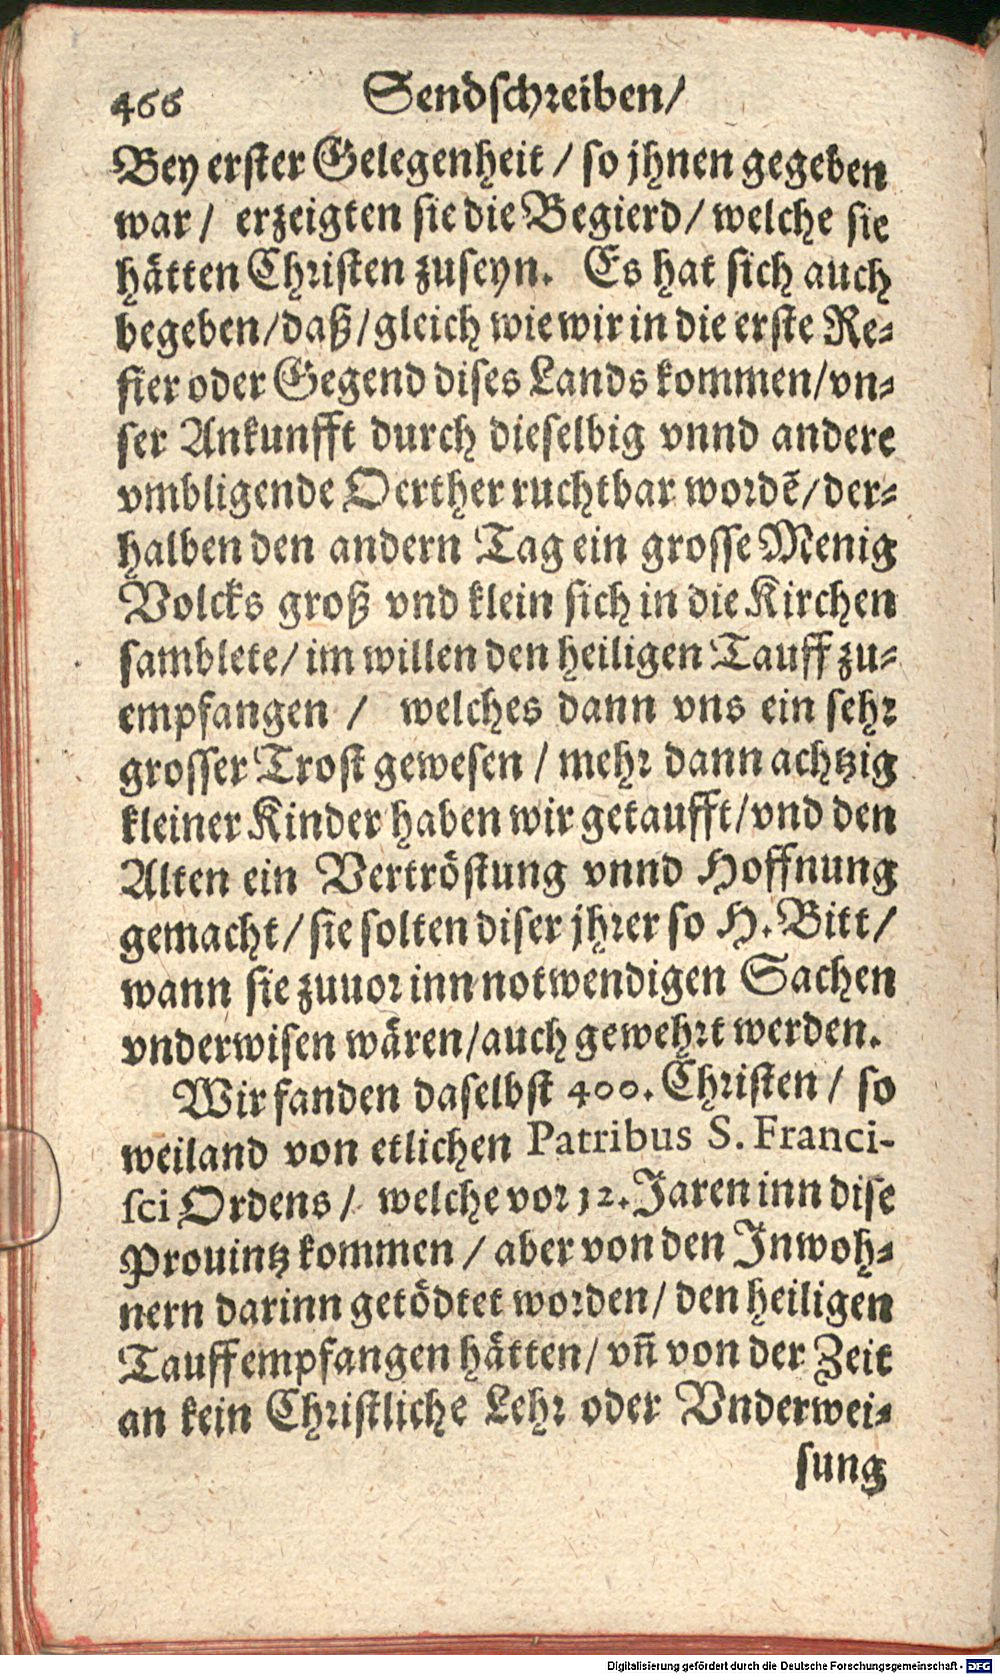 466 Sendschreiben/
Bey erster Gelegenheit / so jhnen gegeben
war / erzeigten sie die Begierd / welche sie
hätten Christen zuseyn. Es hat sich auch
begeben/daß/gleich wie wir in die erste Re-
fier oder Gegend dises Lands kommen/vn-
ser Ankunfft durch dieselbig vnnd andere
vmbligende Oerther ruchtbar wordẽ/der-
halben den andern Tag ein grosse Menig
Volcks groß vnd klein sich in die Kirchen
samblete/im willen den heiligen Tauff zu-
empfangen / welches dann vns ein sehr
grosser Trost gewesen / mehr dann achtzig
kleiner Kinder haben wir getaufft/vnd den
Alten ein Vertröstung vnnd Hoffnung
gemacht/sie solten diser jhrer so H. Bitt/
wann sie zuuor inn notwendigen Sachen
vnderwisen wären/auch gewehrt werden.
Wir fanden daselbst 400. Christen / so
weiland von etlichen Patribus S. Franci-
sci Ordens / welche vor 12. Jaren inn dise
Prouintz kommen / aber von den Inwoh-
nern darinn getödtet worden/den heiligen
Tauff empfangen hätten/vñ von der Zeit
an kein Christliche Lehr oder Vnderwei-
sung
Digitalisierung gefördert durch die Deutsche Forschungsgemeinschaft - DFG